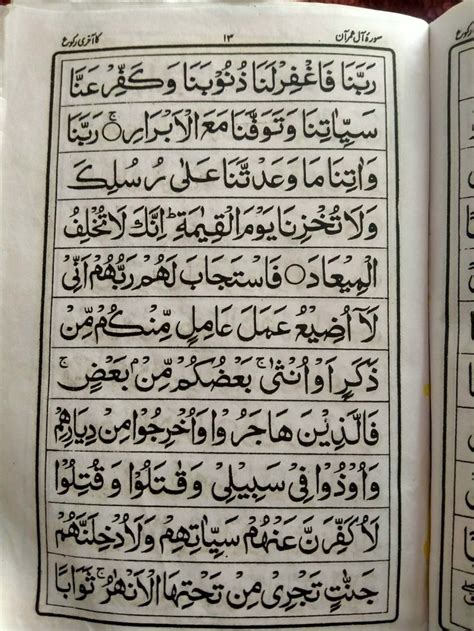 سورۃ آل عمرآن ١٣ کا آخری رکوع
رَبَّنَا فَاغْفِرْ لَنَا ذُنُوْبَنَا وَ كَفِّرْ عَنَّا
سَيِّاٰتِنَا وَ تَوَفَّنَا مَعَ الْاَبْرَارِ ۚ○ رَبَّنَا
وَ اٰتِنَا مَا وَعَدْتَّنَا عَلٰى رُسُلِكَ
وَلَا تُخْزِنَا يَوْمَ الْقِيٰمَةِ ؕ اِنَّكَ لَا تُخْلِفُ
الْمِيْعَادَ ○ فَاسْتَجَابَ لَهُمْ رَبُّهُمْ اَنِّىْ
لَاۤ اُضِيْعُ عَمَلَ عَامِلٍ مِّنْكُمْ مِّنْ
ذَكَرٍ اَوْ اُنْثٰى ۚ بَعْضُكُمْ مِّنْۢ بَعْضٍ ۚ
فَالَّذِيْنَ هَاجَرُوْا وَاُخْرِجُوْا مِنْ دِيَارِهِمْ
وَاُوْذُوْا فِىْ سَبِيْلِىْ وَ قٰتَلُوْا وَ قُتِلُوْا
لَاُكَفِّرَنَّ عَنْهُمْ سَيِّاٰتِهِمْ وَلَاُدْخِلَنَّهُمْ
جَنّٰتٍ تَجْرِىْ مِنْ تَحْتِهَا الْاَنْهٰرُ ۚ ثَوَابًا